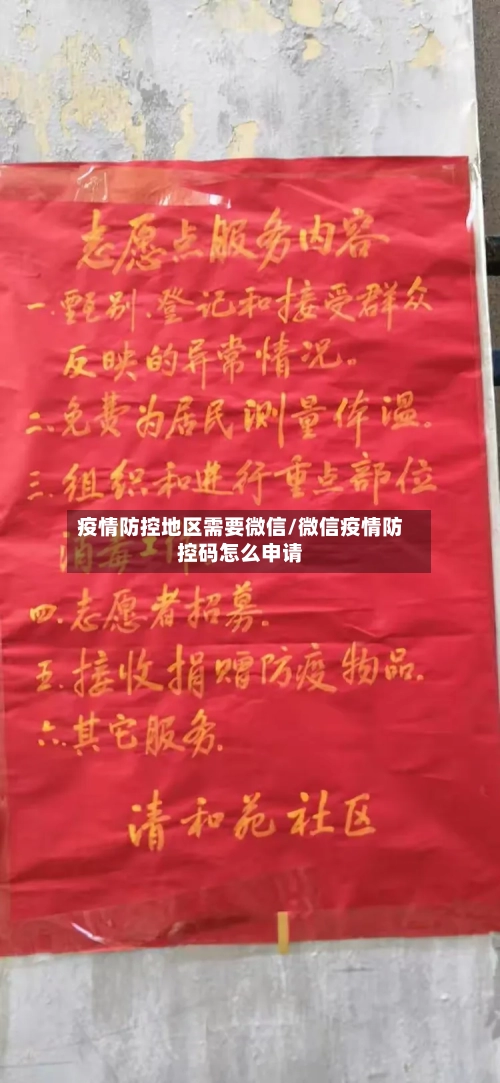 志愿点服务内容
一.甄别、登记和接受群众
反映的异常情况。
二.免费为居民测量体温。
三.组织和进行重点部位
疫情防控地区需要微信/微信疫情防
控码怎么申请
消毒工作。
四.志愿者招募。
五.接收捐赠防疫物品.
六.其它服务.
清和苑社区